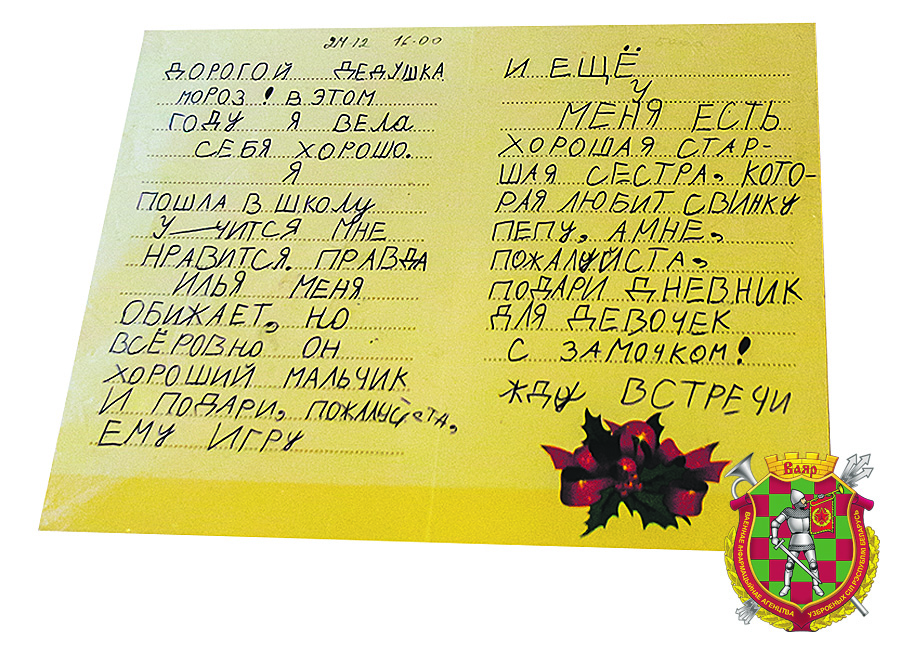 24.12 16-00
ДОРОГОЙ ДЕДУШКА
МОРОЗ! В ЭТОМ
ГОДУ Я ВЕЛА
СЕБЯ ХОРОШО.
Я
ПОШЛА В ШКОЛУ
У—ЧИТСЯ МНЕ
НРАВИТСЯ. ПРАВДА
ИЛЬЯ МЕНЯ
ОБИЖАЕТ, НО
ВСЁРОВНО ОН
ХОРОШИЙ МАЛЬЧИК
И ПОДАРИ, ПОЖАЛУЙСТА,
ЕМУ ИГРУ
И ЕЩЁ
У
МЕНЯ ЕСТЬ
ХОРОШАЯ СТАР-
ШАЯ СЕСТРА, КОТО-
РАЯ ЛЮБИТ СВИНКУ
ПЕПУ, А МНЕ,
ПОЖАЛУЙСТА,
ПОДАРИ ДНЕВНИК
ДЛЯ ДЕВОЧЕК
С ЗАМОЧКОМ!
ЖДУ ВСТРЕЧИ
Ваяр
ВАЕННАЕ ІНФАРМАЦЫЙНАЕ АГЕНЦТВА
УЗБРОЕНЫХ СІЛ РЭСПУБЛІКІ БЕЛАРУСЬ